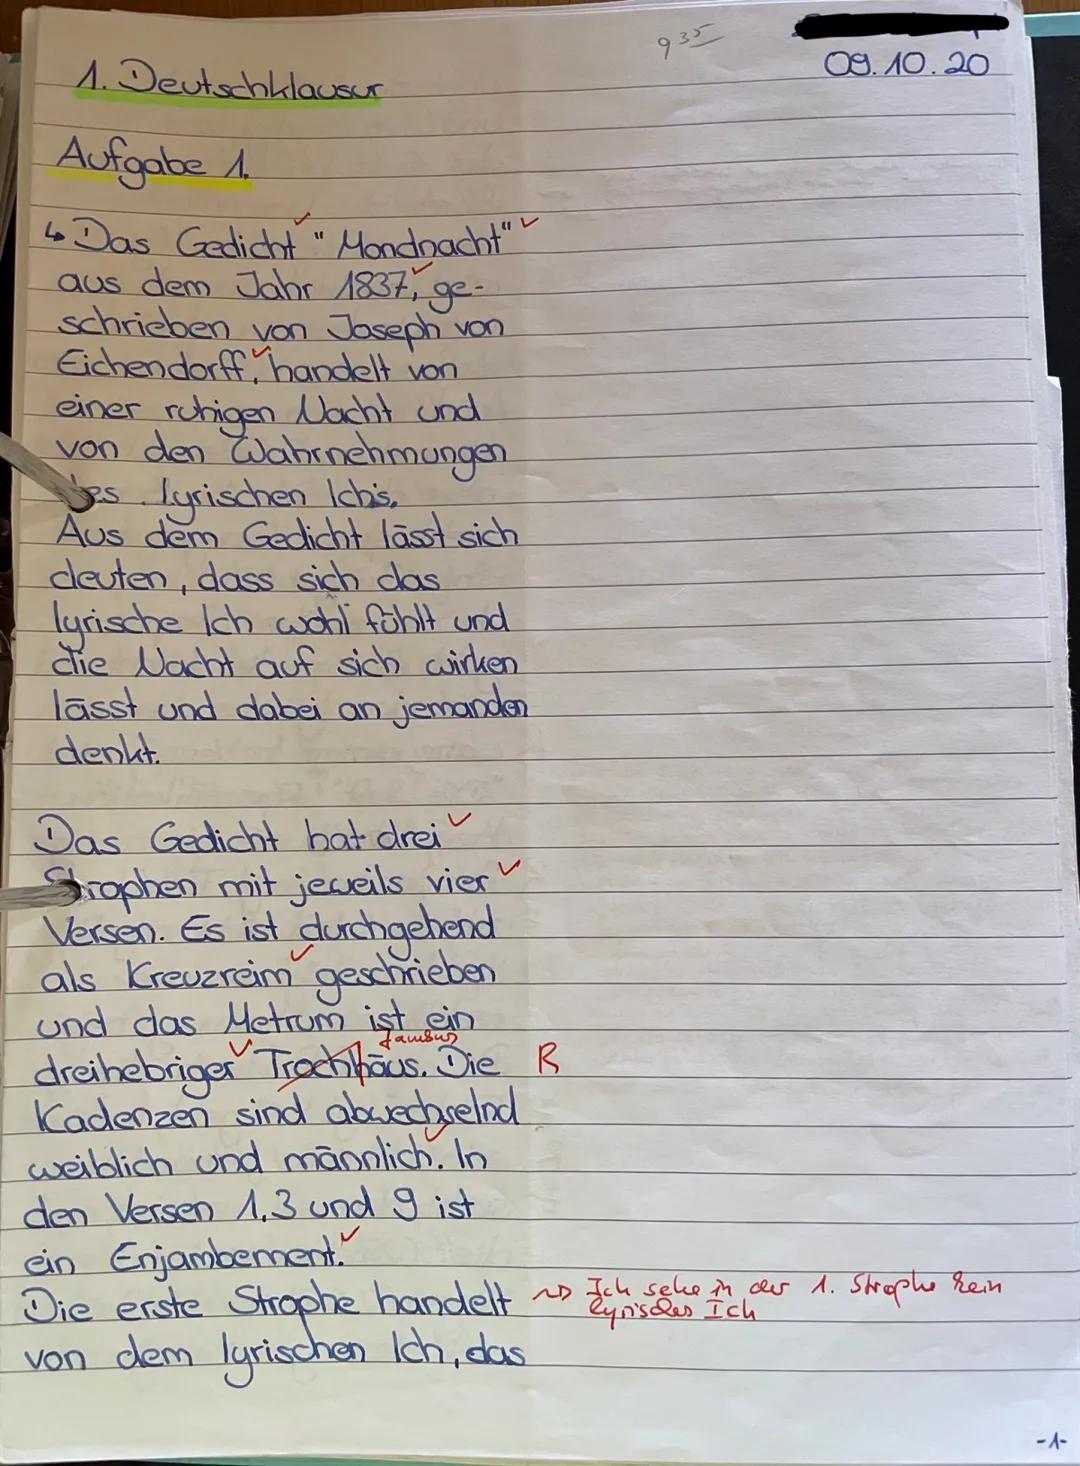 9 35
09.10.20
1. Deutschklausur
Aufgabe 1.
↳ Das Gedicht "Mondnacht"
aus dem Jahr 1837, ge-
schrieben von Joseph von
Eichendorff, handelt von
einer ruhigen Nacht und
von den Wahrnehmungen
des lyrischen Ich's.
Aus dem Gedicht lässt sich
deuten, dass sich das
lyrische Ich wohl fühlt und
die Nacht auf sich wirken
lässt und dabei an jemanden
denkt.
Das Gedicht hat drei
Strophen mit jeweils vier
Versen. Es ist durchgehend
als Kreuzreim geschrieben
und das Metrum ist ein
Jambus
dreihebriger Trochhäus. Die R
Kadenzen sind abwechselnd
weiblich und männlich. In
den Versen 1,3 und 9 ist
ein Enjambement.
Die erste Strophe handelt ~> Ich sehe in der 1. Strophe kein
lyrisches Ich
von dem lyrischen Ich, das
-1-